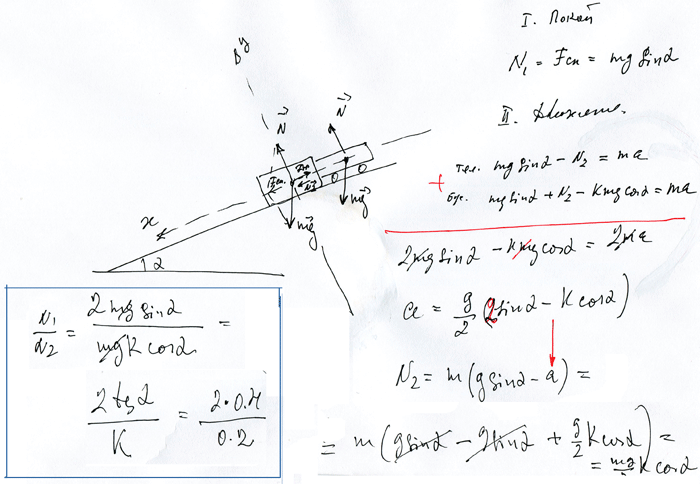 I. Покой
N₁ = Fск = mg sinα
II. Движение.
тел. mg sinα − N₂ = ma
+
бр. mg sinα + N₂ − kmg cosα = ma
2mg sinα − kmg cosα = 2ma
a = g/2 (2 sinα − k cosα)
N₂ = m(g sinα − a) =
= m(g sinα − g sinα + g/2 k cosα) =
= mg/2 k cosα
y
N
N
Fск.
mg
mg
x
α
N₁/N₂ = 2mg sinα / mgk cosα =
2 tgα / k = 2·0.4 / 0.2